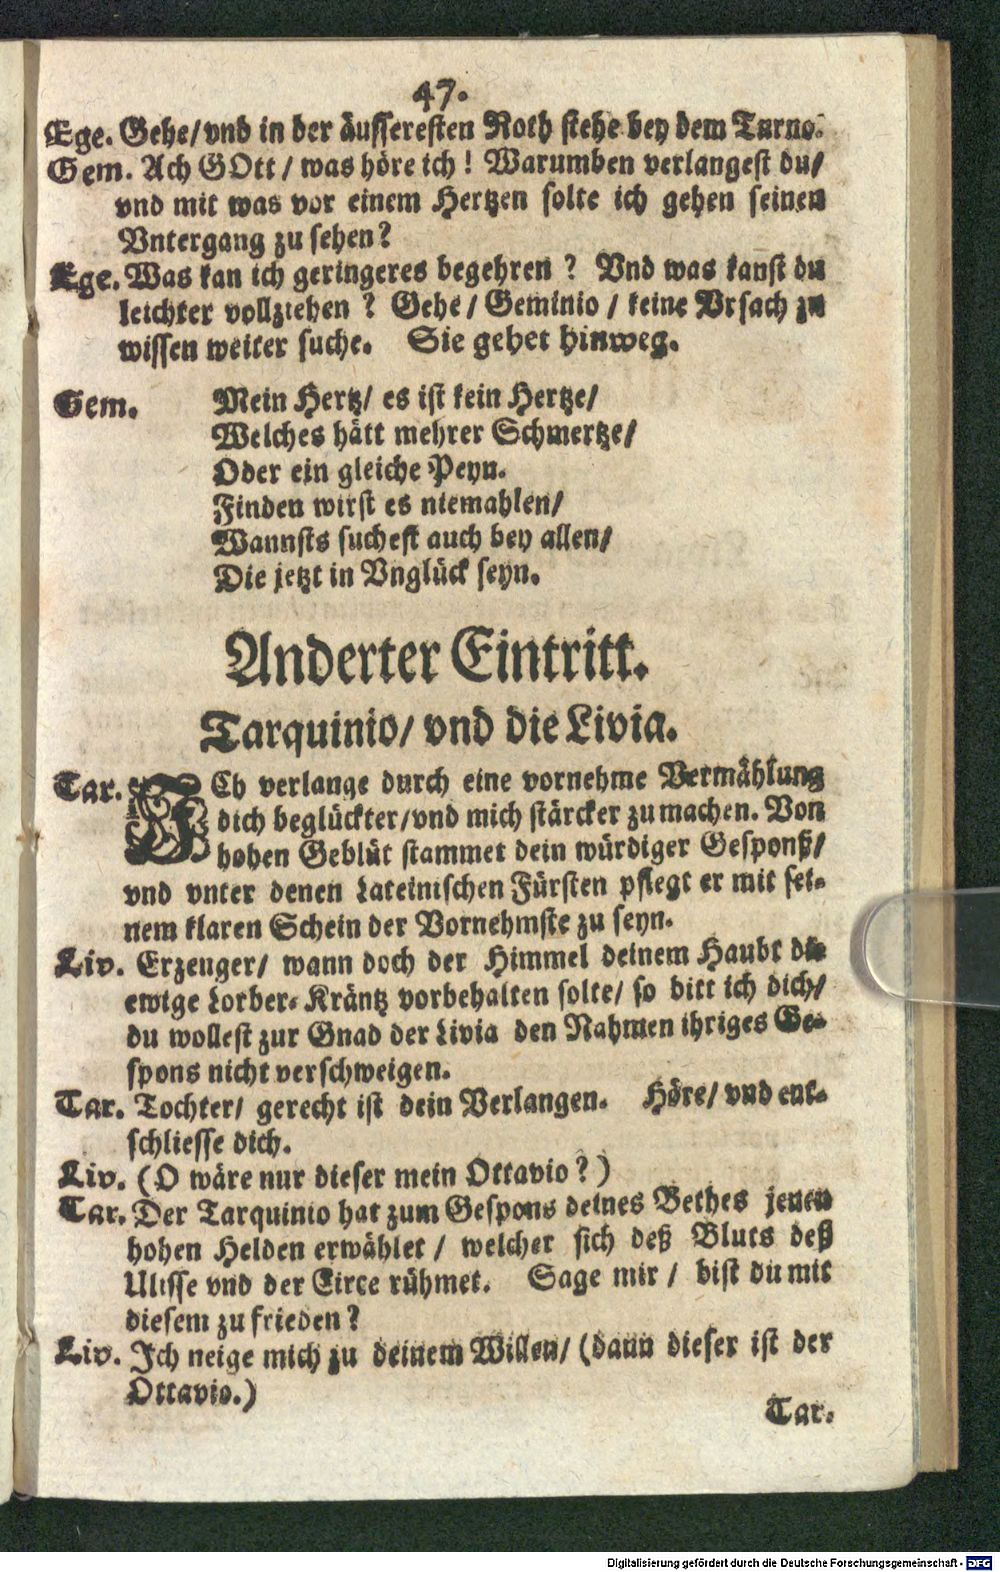 47.
Ege. Gehe/ vnd in der äusseresten Noth stehe bey dem Turno.
Gem. Ach GOtt / was höre ich ! Warumben verlangest du/
vnd mit was vor einem Hertzen solte ich gehen seinen
Vntergang zu sehen?
Ege. Was kan ich geringeres begehren ? Vnd was kanst du
leichter vollziehen ? Gehe / Geminio / keine Vrsach zu
wissen weiter suche. Sie gehet hinweg.
Gem. Mein Hertz/ es ist kein Hertze/
Welches hätt mehrer Schmertze/
Oder ein gleiche Peyn.
Finden wirst es niemahlen/
Wannsts suchest auch bey allen/
Die jetzt in Vnglück seyn.
Anderter Eintritt.
Tarquinio/ vnd die Livia.
Tar. ICh verlange durch eine vornehme Vermählung
dich beglückter/ vnd mich stärcker zu machen. Von
hohen Geblüt stammet dein würdiger Gesponß/
vnd vnter denen Lateinischen Fürsten pflegt er mit sei-
nem klaren Schein der Vornehmste zu seyn.
Liv. Erzeuger/ wann doch der Himmel deinem Haubt die
ewige Lorber-Kräntz vorbehalten solte/ so bitt ich dich/
du wollest zur Gnad der Livia den Nahmen ihriges Ge-
spons nicht verschweigen.
Tar. Tochter/ gerecht ist dein Verlangen. Höre/ vnd ent-
schliesse dich.
Liv. (O wäre nur dieser mein Ottavio ? )
Tar. Der Tarquinio hat zum Gespons deines Bethes jenen
hohen Helden erwählet / welcher sich deß Bluts deß
Ulisse vnd der Circe rühmet. Sage mir / bist du mit
diesem zu frieden ?
Liv. Ich neige mich zu deinem Willen/ (dann dieser ist der
Ottavio.)
Tar.
Digitalisierung gefördert durch die Deutsche Forschungsgemeinschaft - DFG